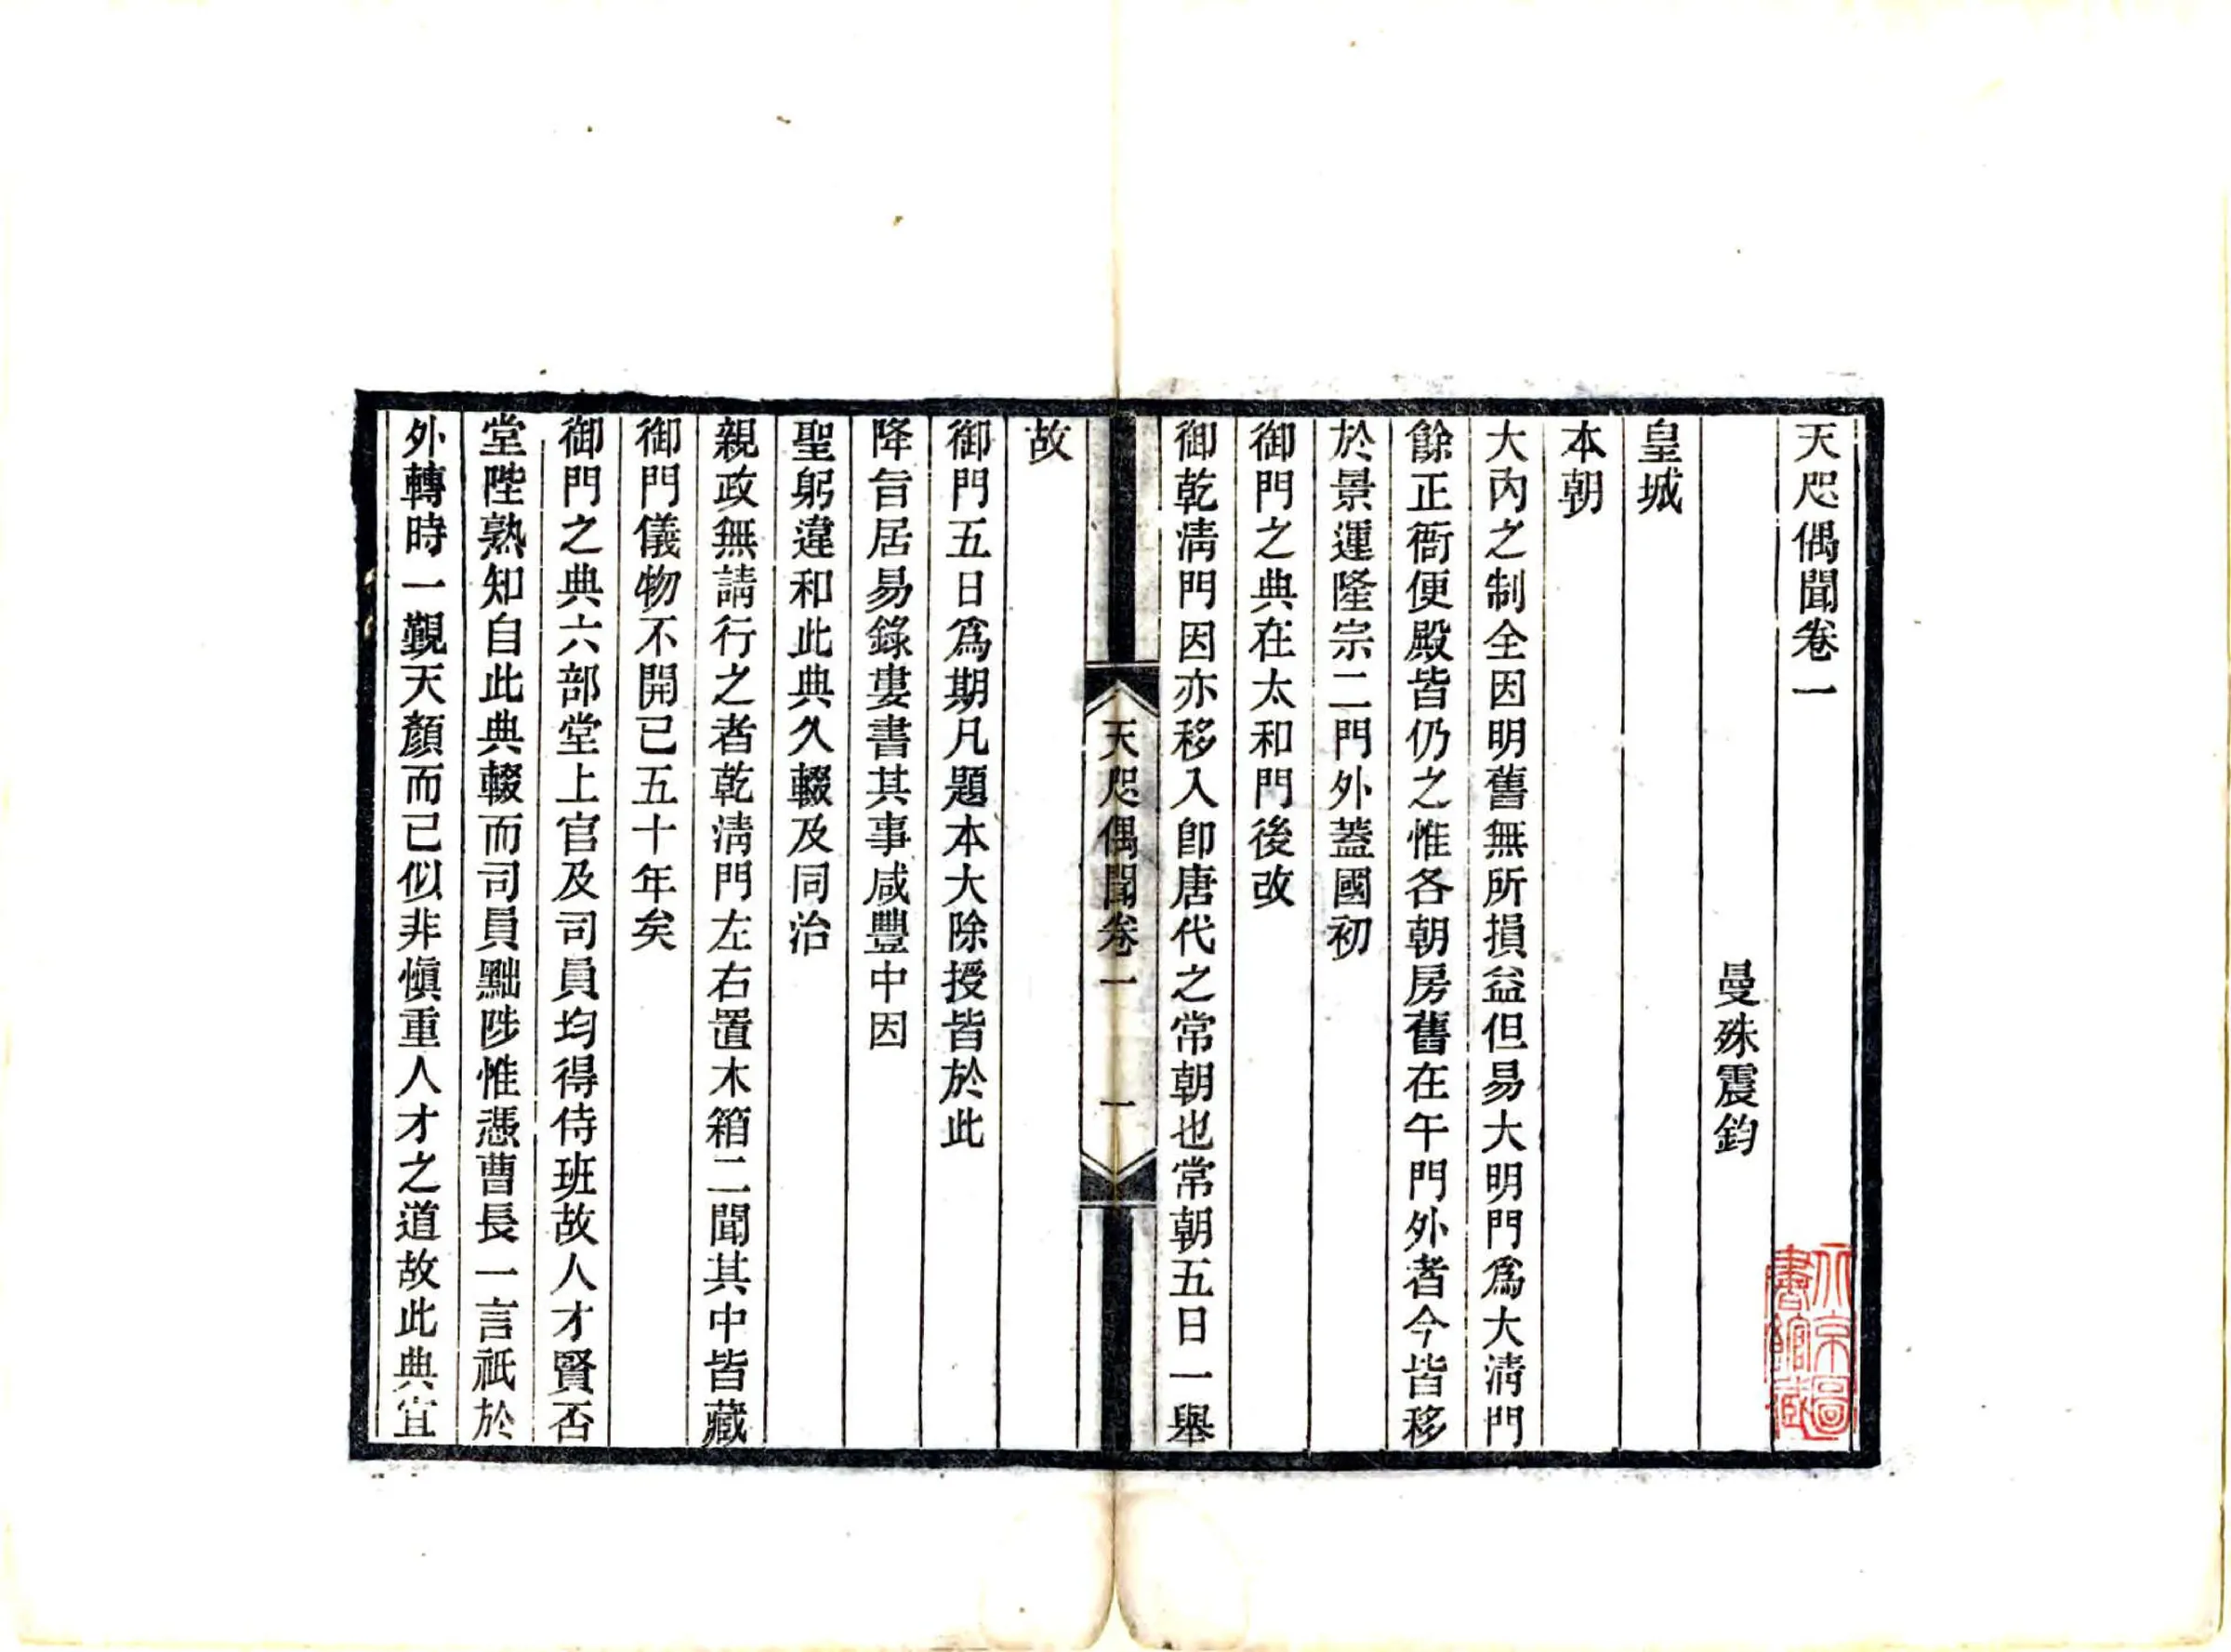 天咫偶聞卷一
曼殊震鈞
皇城
本朝
大內之制全因明舊無所損益但易大明門爲大淸門
餘正衙便殿皆仍之惟各朝房舊在午門外者今皆移
於景運隆宗二門外蓋國初
御門之典在太和門後改
御乾淸門因亦移入卽唐代之常朝也常朝五日一舉
天咫偶聞卷一 一
故
御門五日爲期凡題本大除授皆於此
降旨居易錄婁書其事咸豐中因
聖躬違和此典久輟及同治
親政無請行之者乾淸門左右置木箱二聞其中皆藏
御門儀物不開已五十年矣
御門之典六部堂上官及司員均得侍班故人才賢否
堂陛熟知自此典輟而司員黜陟惟憑曹長一言祇於
外轉時一覲天顏而已似非愼重人才之道故此典宜
京圖
書館藏